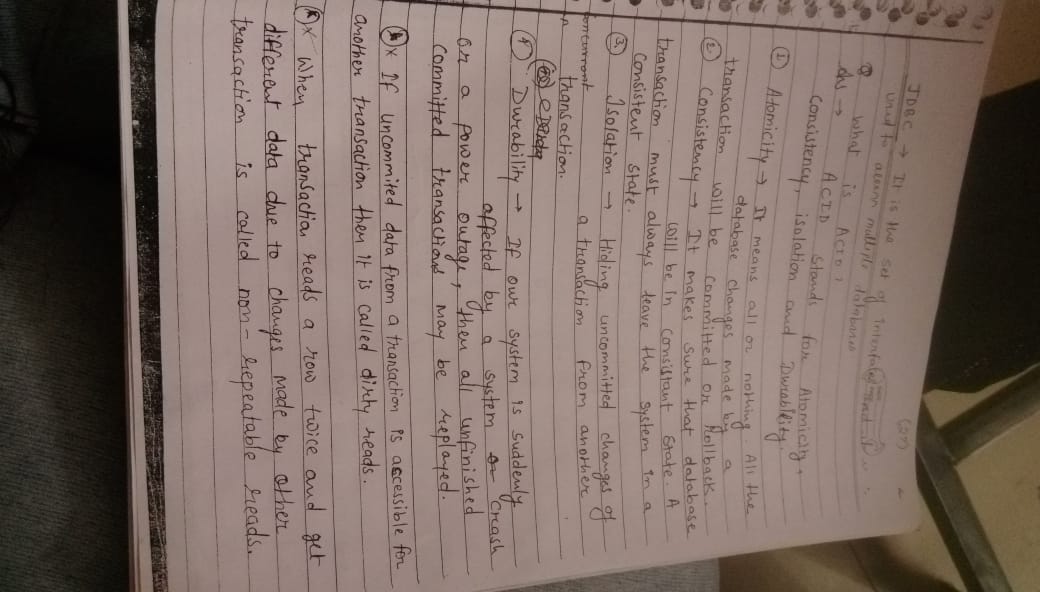 (27)
JDBC → It is the set of interfaces and it
used to access multiple databases
Q What is ACID?
Ans → ACID stands for Atomicity,
Consistency, isolation and Durability.
① Atomicity → It means all or nothing. All the
database changes made by a
transaction will be committed or Rollback.
② Consistency → It makes sure that database
will be in consistant state. A
transaction must always leave the system in a
consistent state.
③ Isolation → Hiding uncommitted changes of
concurrent a transaction from another
transaction.
④ Durability → If our system is suddenly
affected by a system or crash
or a power outage, then all unfinished
committed transactions may be replayed.
* If uncommited data from a transaction is accessible for
another transaction then it is called dirty reads.
* When transaction reads a row twice and get
different data due to changes made by other
transaction is called non-repeatable reads.